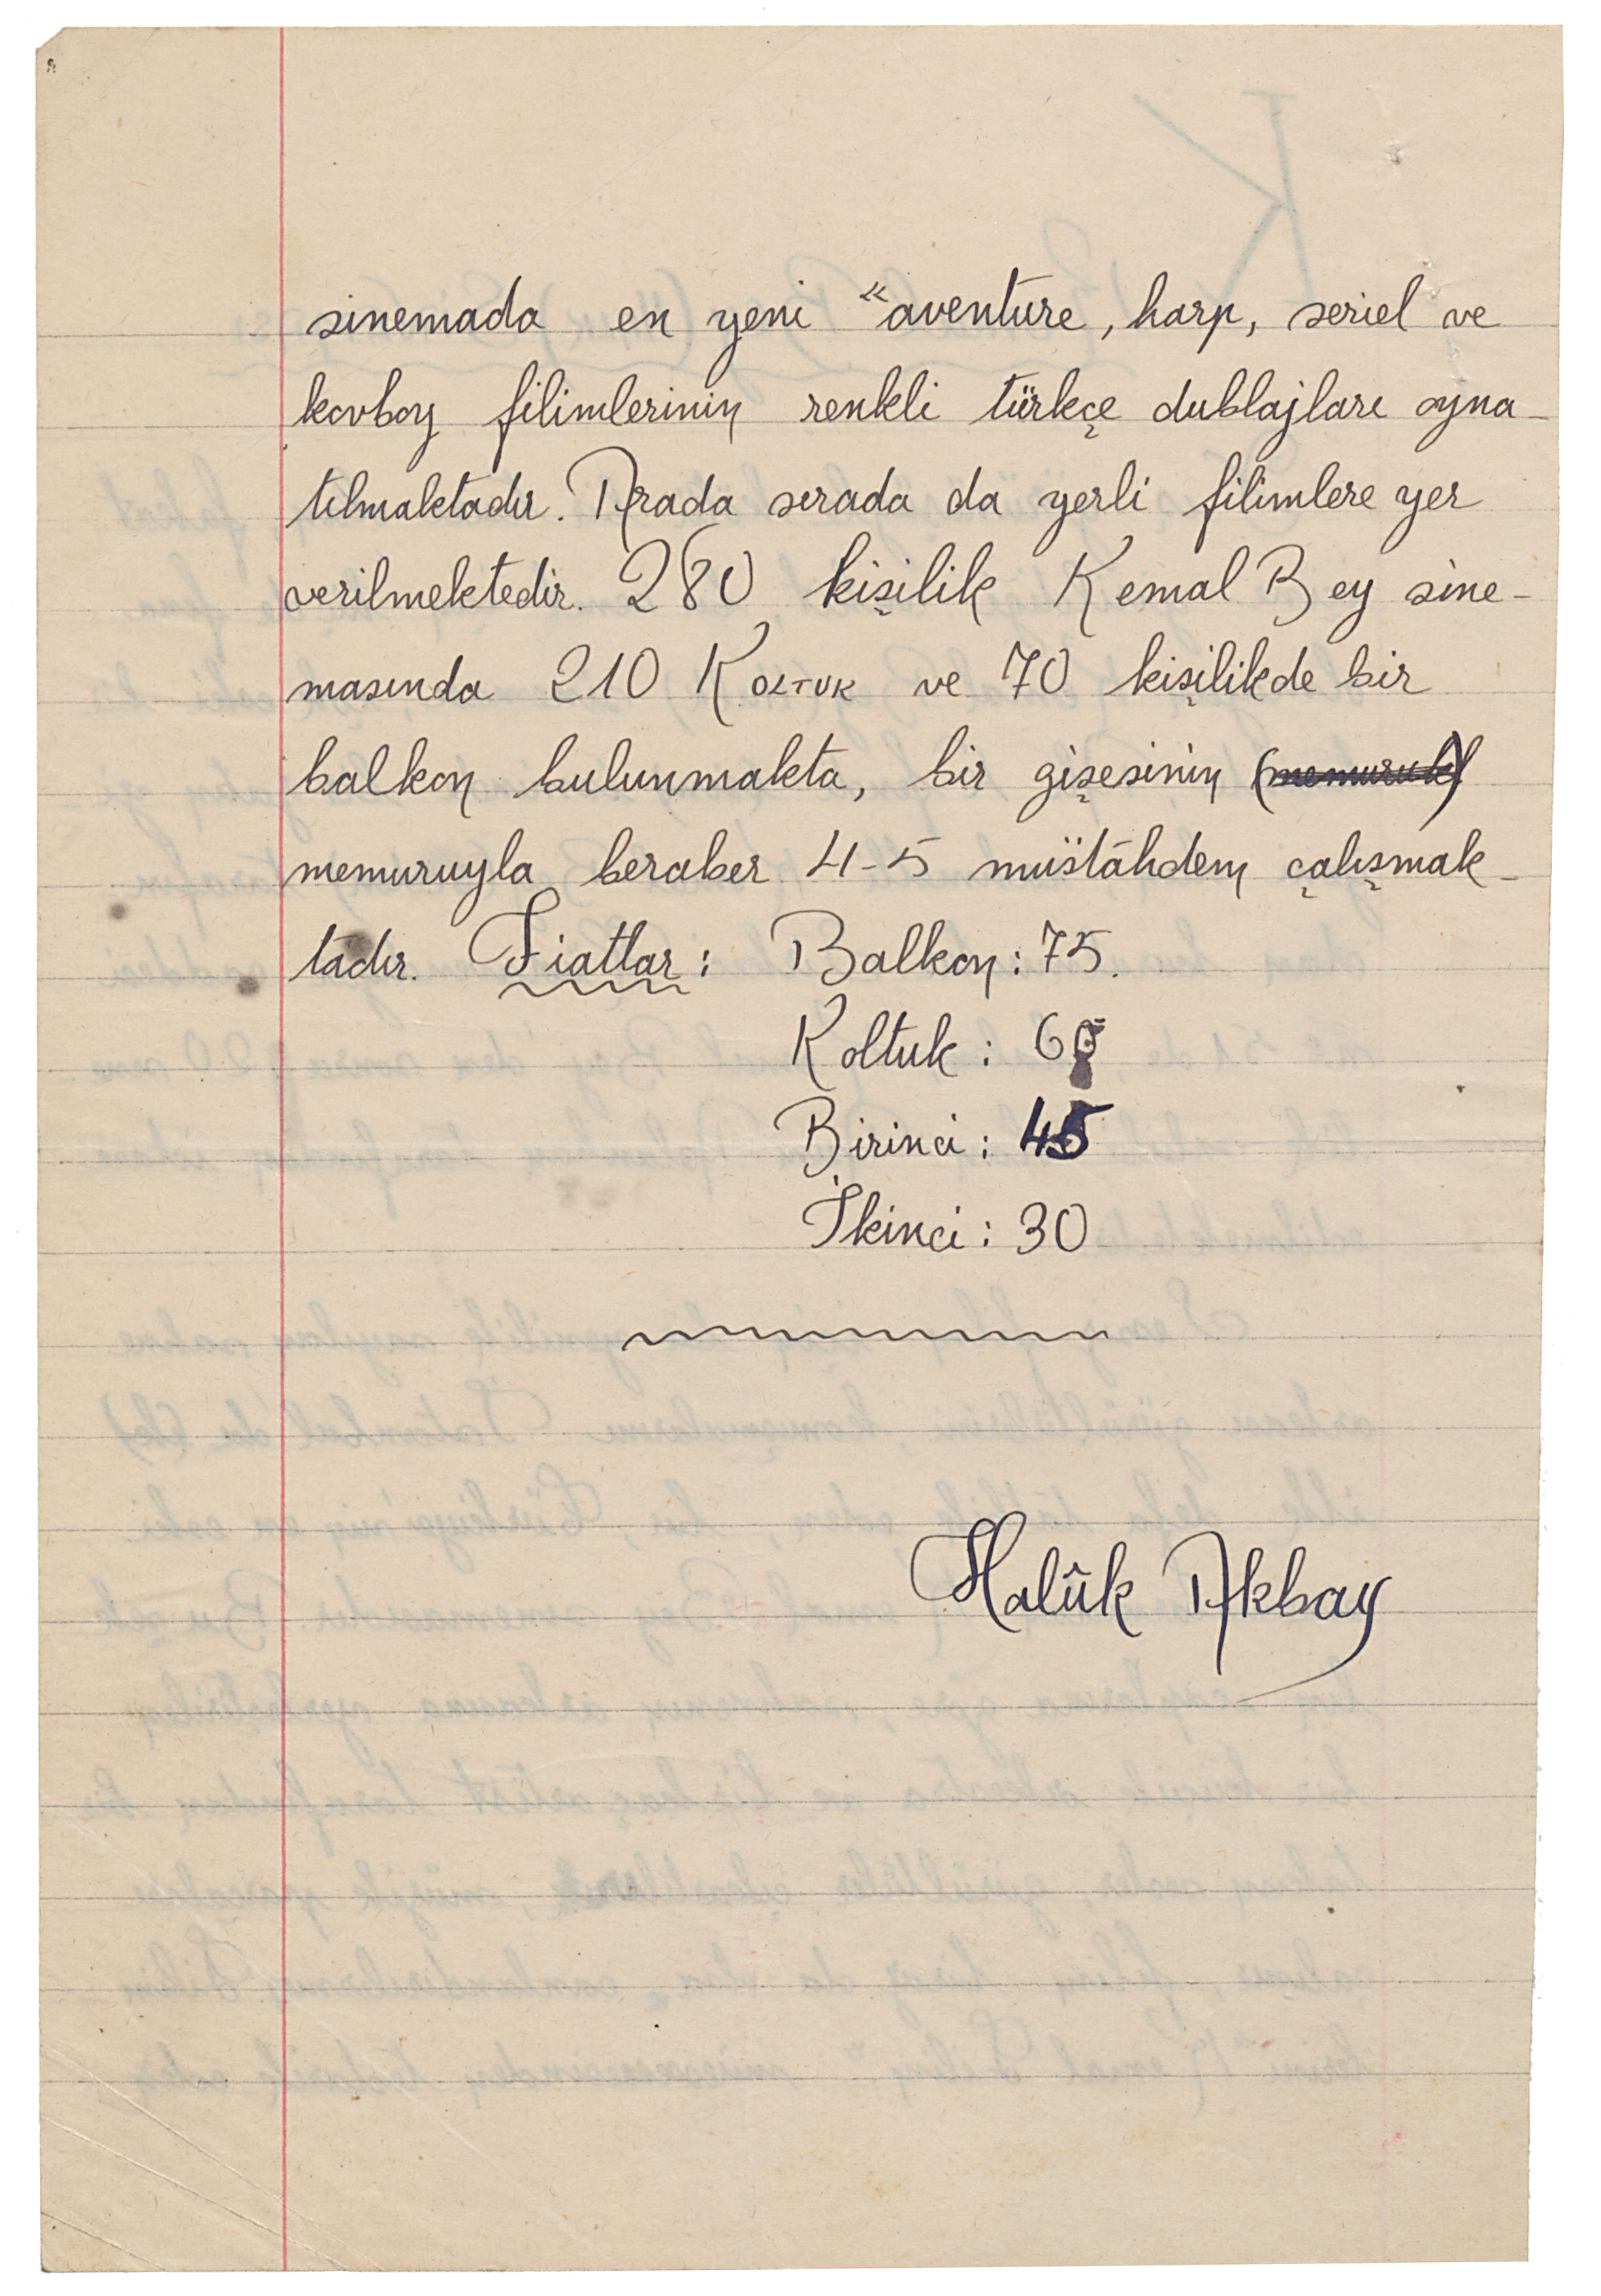 sinemada en yeni "aventure, harp, seriel ve
kovboy filimlerinin renkli türkçe dublajları oyna-
tılmaktadır. Arada sırada da yerli filimlere yer
verilmektedir. 280 kişilik Kemal Bey sine-
masında 210 KOLTUK ve 70 kişilikde bir
balkon bulunmakta, bir gişesinin
memuruyla beraber 4-5 müstâhdem çalışmak-
tadır. Fiatlar: Balkon: 75.
Koltuk: 60
Birinci: 45
İkinci: 30
Halûk Akbay